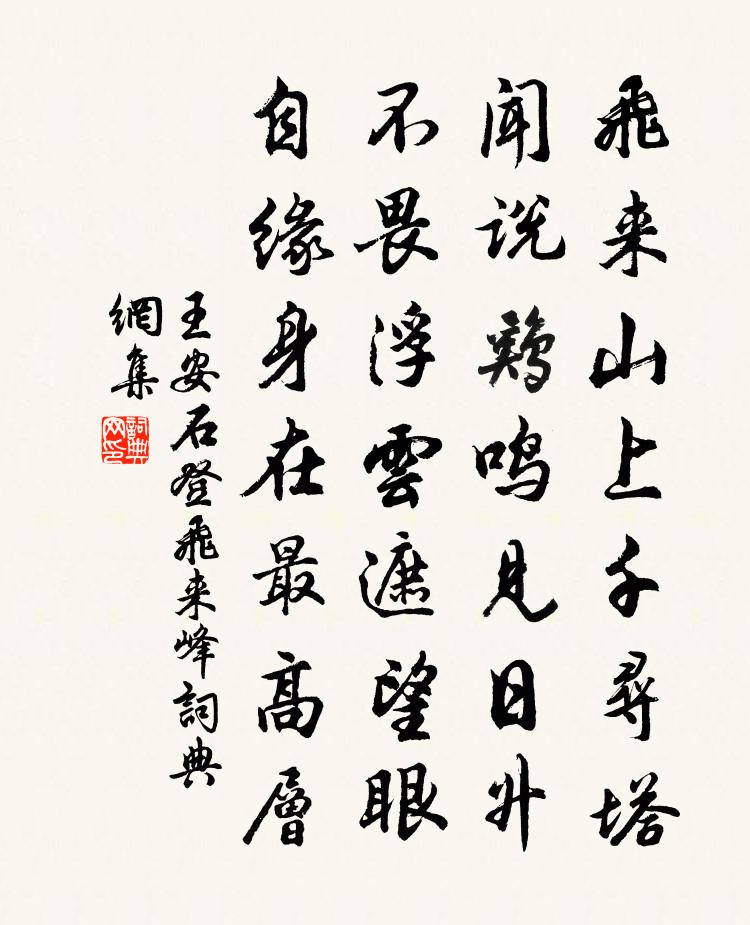 飛来山上千尋塔
聞說鷄鳴見日升
不畏浮雲遮望眼
自緣身在最高層
王安石登飛来峰詞典
網集
詞典
网印